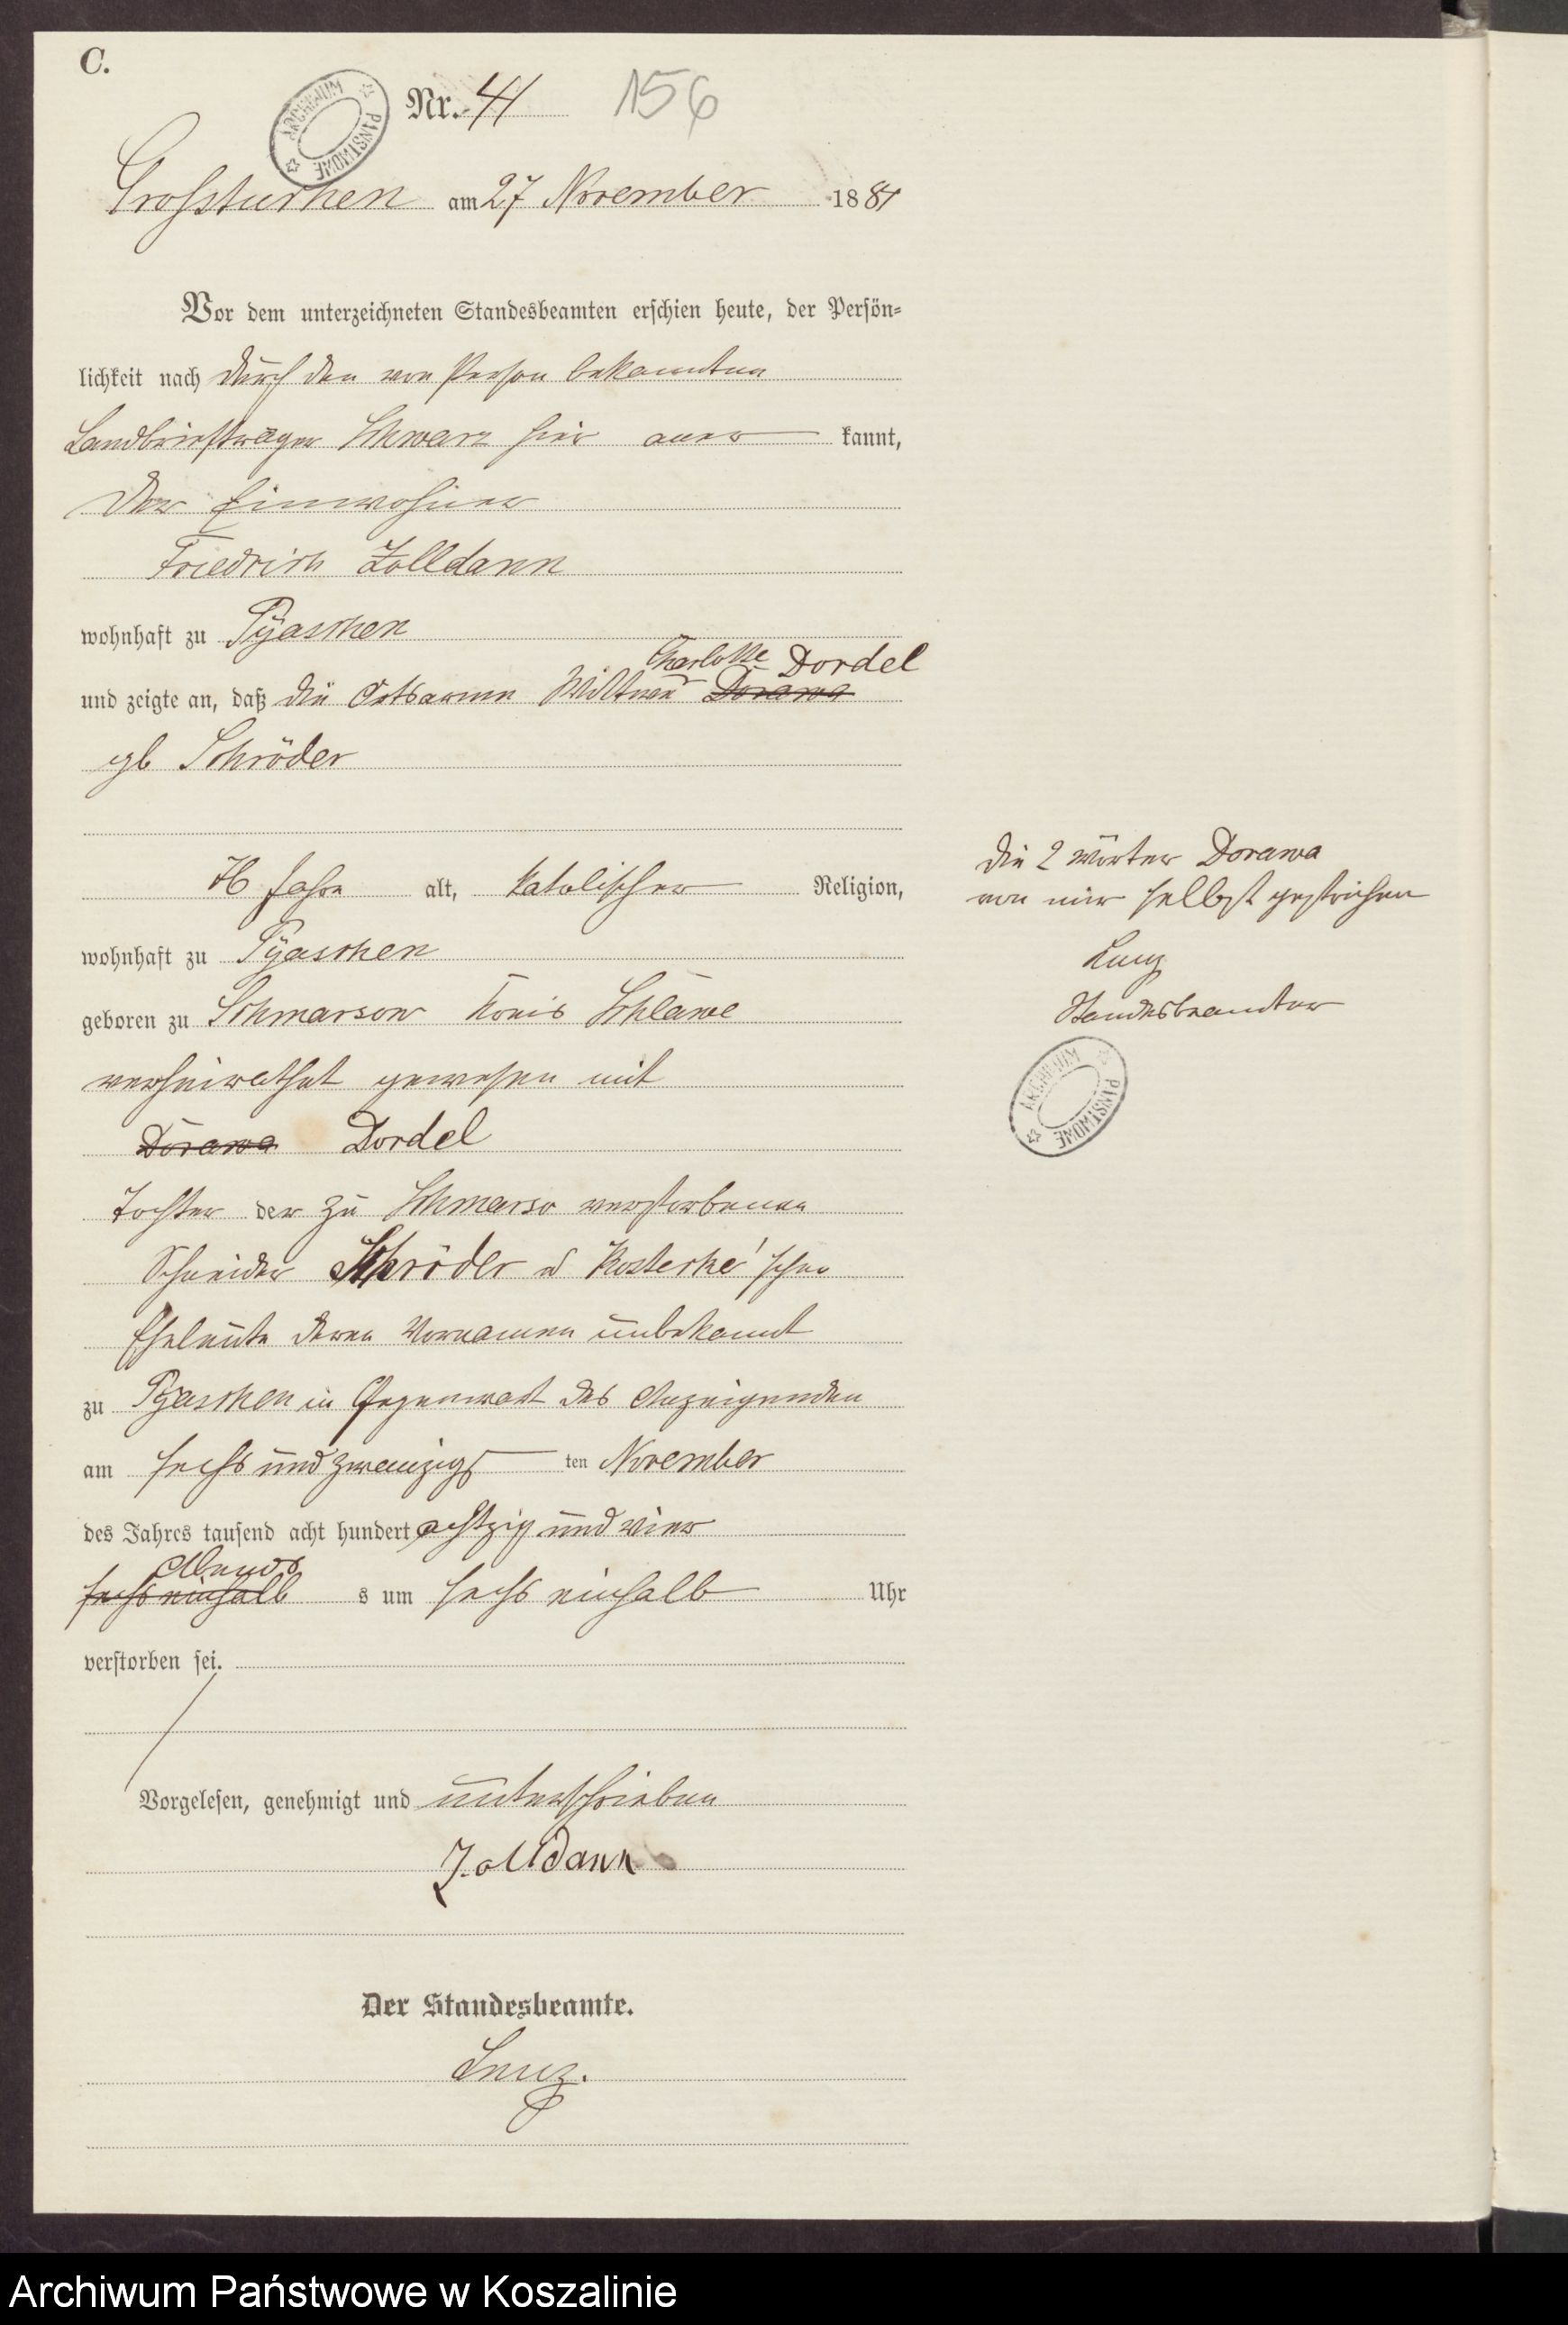 C.
Nr. 41 156
ARCHIWUM PAŃSTWOWE
Grosstuchen am 27 November 1884
Vor dem unterzeichneten Standesbeamten erschien heute, der Persön-
lichkeit nach durch den von Person bekannten
Landbriefträger Schwarz hier aner kannt,
der Einwohner
Friedrich Zolldann
wohnhaft zu Pyaschen
Charlotte Dordel
und zeigte an, daß die Ortsarme Wittwe Dorawa
gb Schröder
76 Jahre alt, katolischer Religion,
wohnhaft zu Pyaschen
geboren zu Schmarsow Kreis Schlawe
verheirathet gewesen mit
Dorawa Dordel
Tochter der zu Schmarso verstorbenen
Schneider Schröder u Kosterke'schen
Eheleute deren Vornamen unbekannt
zu Pyaschen in Gegenwart des Anzeigenden
am sechs und zwanzigs ten November
des Jahres tausend acht hundert achtzig und vier
Abends
sechs einhalb s um sechs einhalb Uhr
verstorben sei.
Vorgelesen, genehmigt und unterschrieben
Zolldann
Der Standesbeamte.
Lenz.
die 2 Wörter Dorawa
von mir selbst gestrichen
Lenz
Standesbeamter
ARCHIWUM PAŃSTWOWE
Archiwum Państwowe w Koszalinie